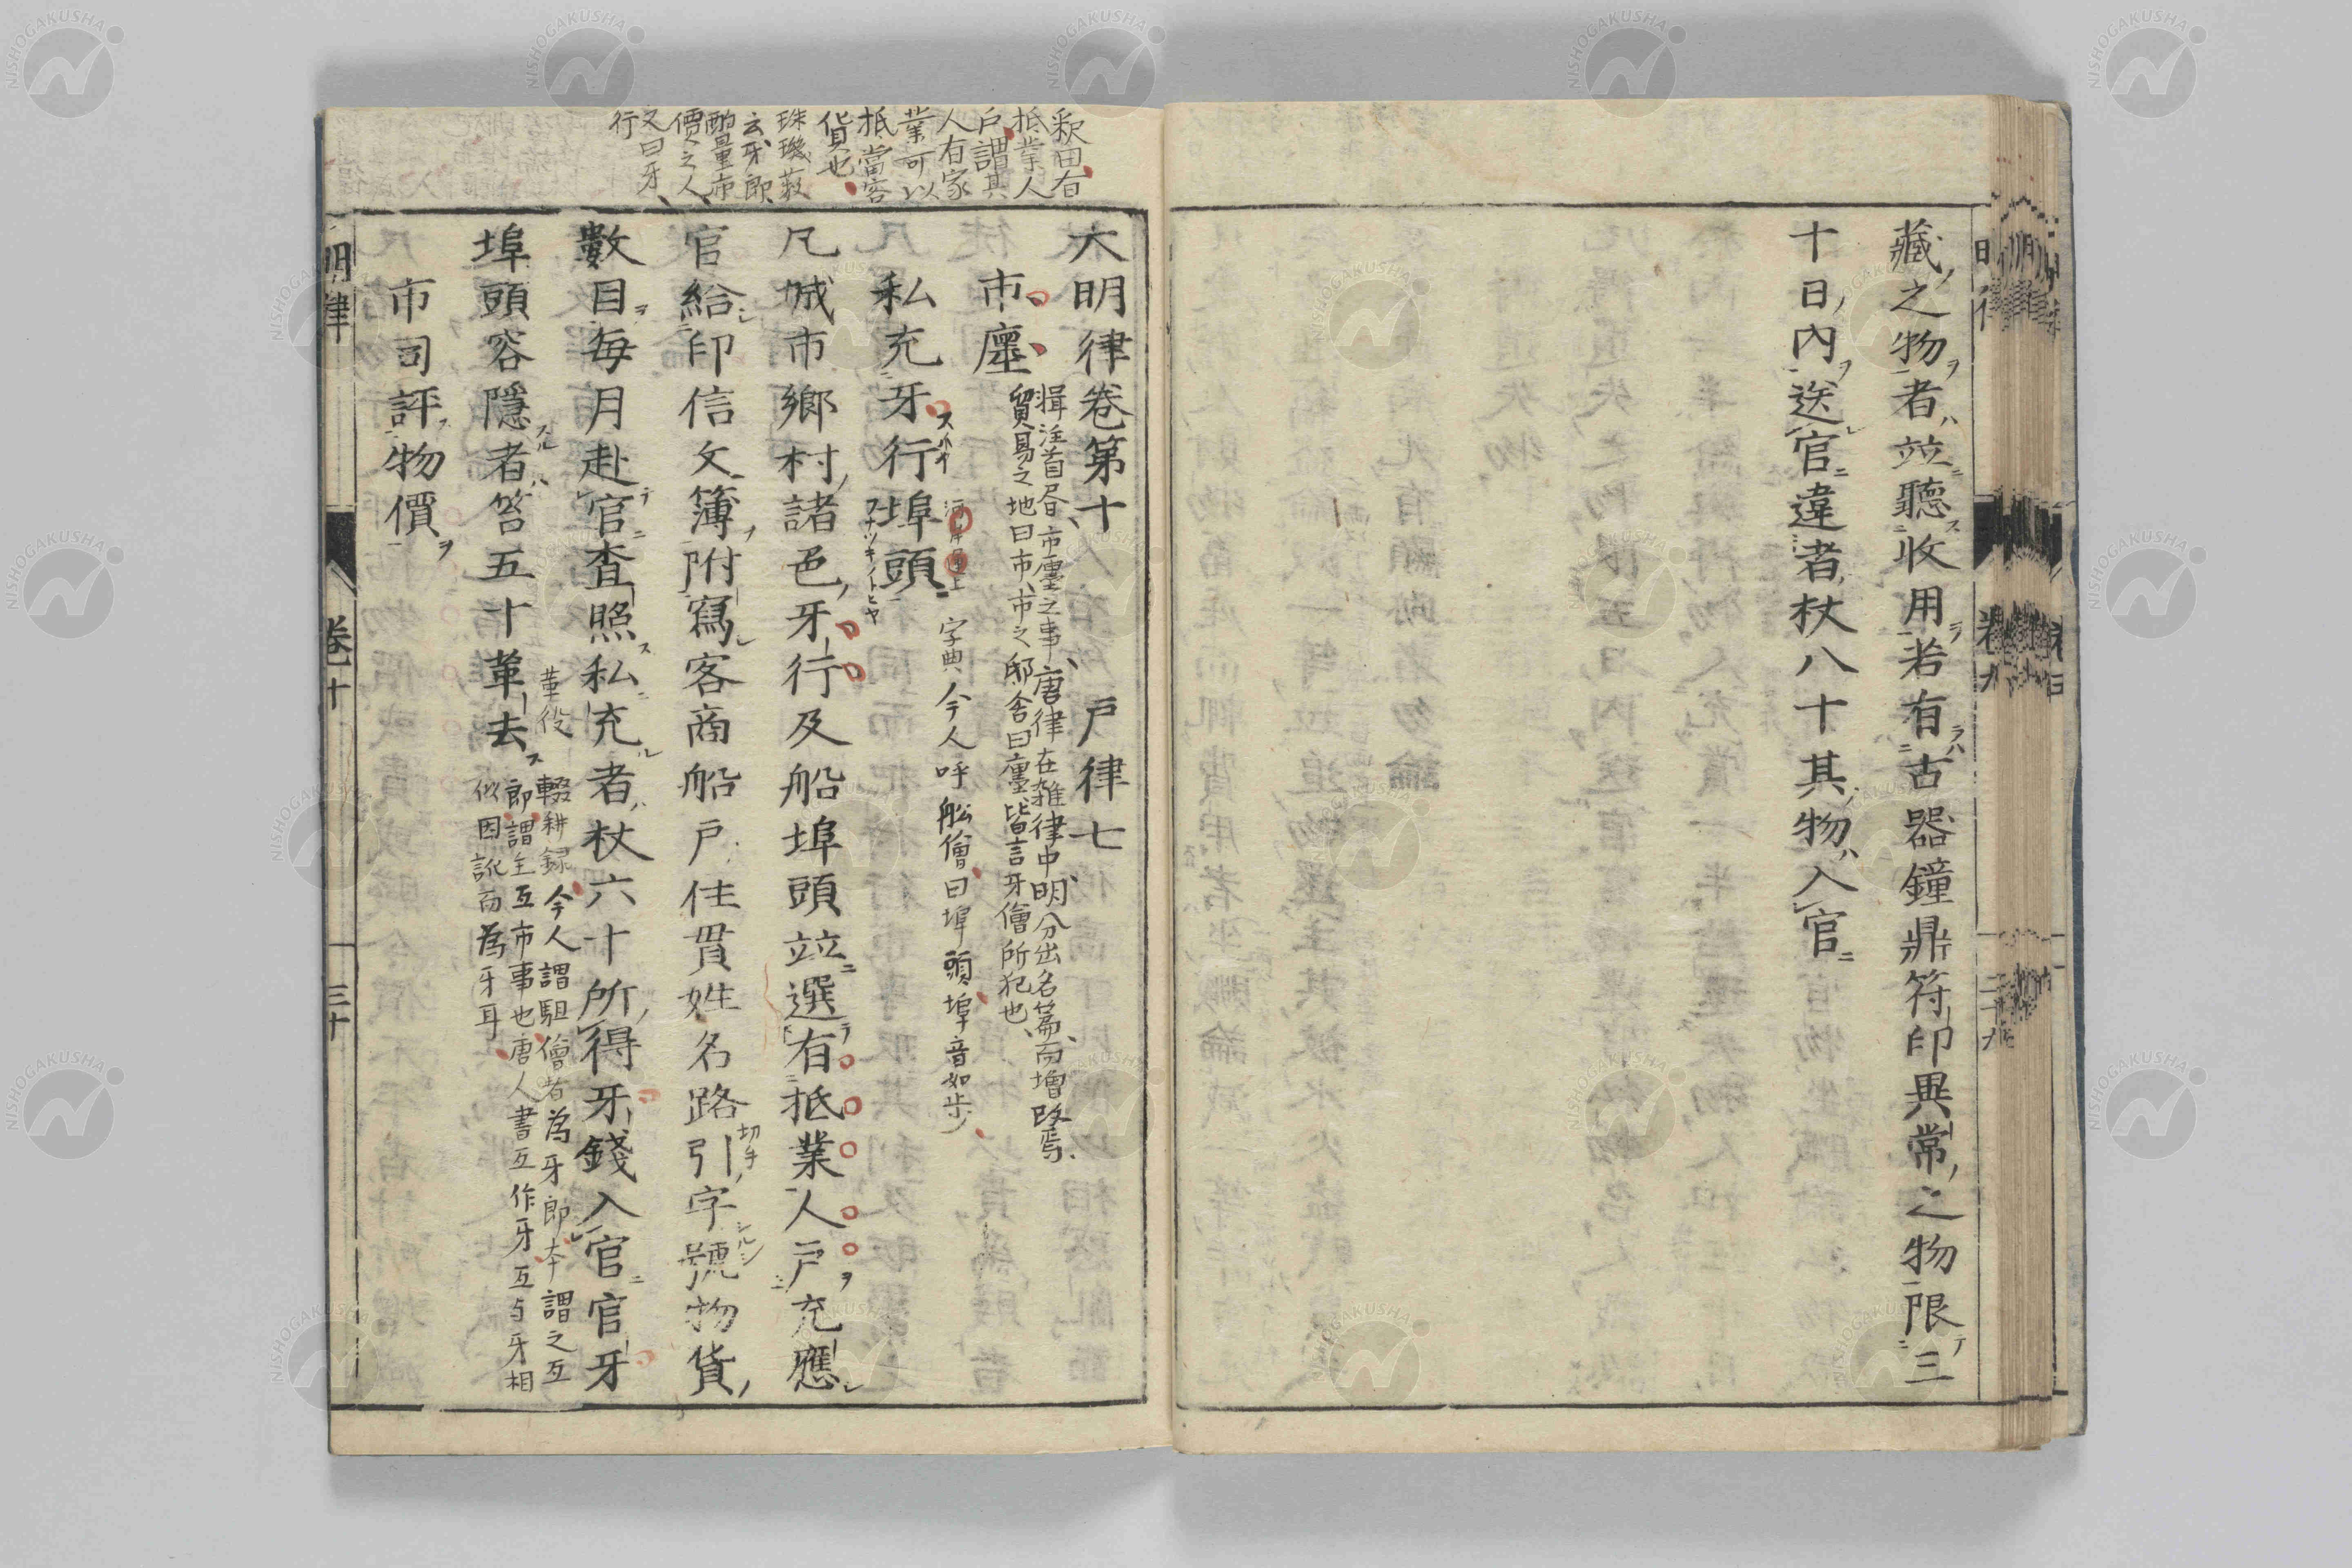 藏之物者並聽收用若有古器鐘鼎符印異常之物限三
十日內送官違者杖八十其物入官
釈田有
抵業人
戶謂其
人有家
業可以
抵當客
貨也
珠璣薮
云牙郎
酌量市
價之人
又曰牙
行
大明律卷第十 戶律七
市廛
輯注首昏市廛之事唐律在雑律中明分出名篇而增改焉
貿易之地曰市市之邸舍曰廛皆言牙儈所犯也
私充牙行埠頭
スホイ
フナツキノトヒヤ
字典今人呼舩儈曰埠頭埠音如步
凡城市鄉村諸色牙行及船埠頭並選有抵業人戶充應
官給印信文簿附寫客商船戶住貫姓名路引字號物貨
切手
シルシ
數目每月赴官查照私充者杖六十所得牙錢入官官牙
埠頭容隱者笞五十革去
革役
輟耕録今人謂駔儈者為牙郎本謂之互
郎謂主互市事也唐人書互作牙互与牙相
似因訛而為牙耳
市司評物價
明律 卷十 三十
NISHOGAKUSHA